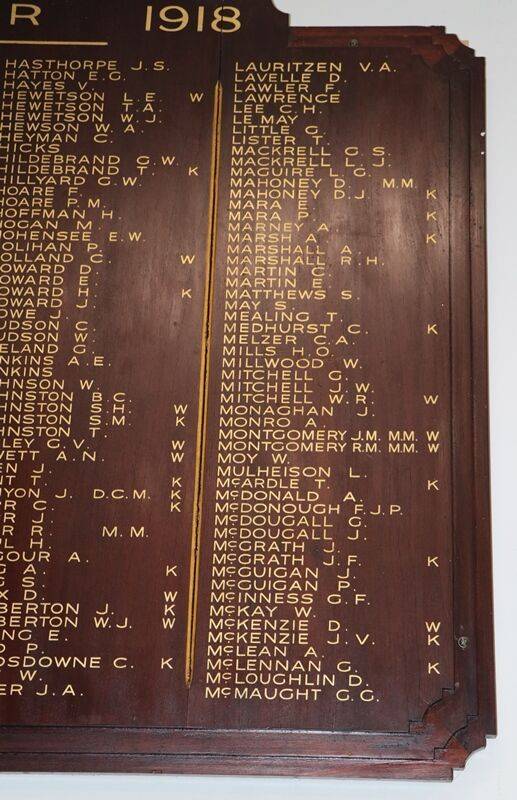 R 1918
HASTHORPE J.S.
HATTON E.G.
HAYES V.
HEWETSON L.E. W
HEWETSON T.A.
HEWETSON W.J.
HEWSON W.A.
HEYMAN C.
HICKS
HILDEBRAND G.W.
HILDEBRAND T. K
HILLYARD G.W.
HOARE
HOARE P.M.
HOFFMAN H.
HOGAN M.
HOHENSEE E.W.
HOLIHAN P.
OLLAND C. W
OWARD D.
OWARD E.
OWARD H. K
OWARD J.
OWE J.
UDSON C.
UDSON W.
ELAND G.
NKINS A.E.
NKINS
HNSON W.
HNSTON B.C.
HNSTON S.H. W
HNSTON S.M. K
HNSTON T.
LEY G.V. W
VETT A.N. W
EN J.
NT T. K
NYON J. D.C.M. K
R C. K
R J.
R R. M.M.
L H.
GOUR A.
G A. K
G S.
X D. W
BERTON J. K
BERTON W.J. W
NG E.
D P.
DSDOWNE C. K
W.
ER J.A.
LAURITZEN V.A.
LAVELLE D.
LAWLER F.
LAWRENCE
LEE C.H.
LE MAY
LITTLE G.
LISTER T.
MACKRELL G.S.
MACKRELL L.J.
MAGUIRE L.G.
MAHONEY D. M.M.
MAHONEY D.J. K
MARA E.
MARA P. K
MARNEY A.
MARSH A. K
MARSHALL A.
MARSHALL R.H.
MARTIN C.
MARTIN E.
MATTHEWS S.
MAY S.
MEALING T.
MEDHURST C. K
MELZER C.A.
MILLS H.O.
MILLWOOD W.
MITCHELL G.
MITCHELL J.W.
MITCHELL W.R. W
MONAGHAN J.
MONRO A.
MONTGOMERY J.M. M.M. W
MONTGOMERY R.M. M.M. W
MOY W.
MULHEISON L.
McARDLE T. K
McDONALD A.
McDONOUGH F.J.P.
McDOUGALL G.
McDOUGALL J.
McGRATH J.
McGRATH J.F. K
McGUIGAN J.
McGUIGAN P.
McINNESS G.F.
McKAY W.
McKENZIE D. W
McKENZIE J.V. K
McLEAN A.
McLENNAN G. K
McLOUGHLIN D.
McMAUGHT G.G.